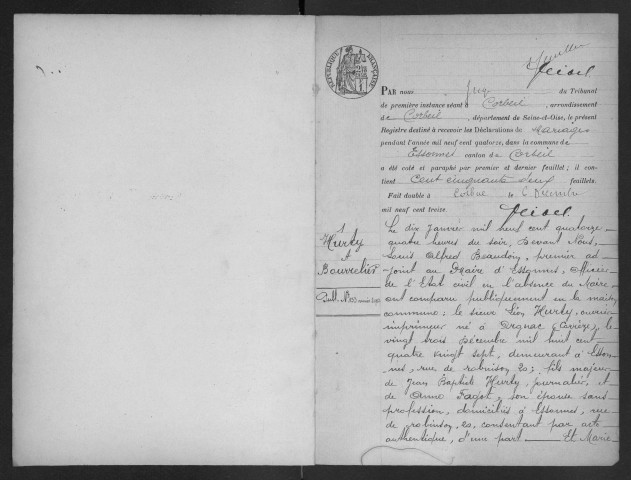 RÉPUBLIQUE FRANÇAISE
1er feuillet
PAR nous Juge du Tribunal
de première instance séant à Corbeil, arrondissement
de Corbeil, département de Seine-et-Oise, le présent
Registre destiné à recevoir les Déclarations de Mariages
pendant l'année mil neuf cent quatorze, dans la commune de
Essonnes canton de Corbeil
a été coté et paraphé par premier et dernier feuillet; il con-
tient Cent cinquante deux feuillets.
Fait double à Corbeil le 6 Décembre
mil neuf cent treize.
1
Hurty
et
Bourrelier
Le dix janvier mil neuf cent quatorze
quatre heures du soir, Devant Nous,
Louis Alfred Beaudoin, premier ad-
joint au Maire d'Essonnes, Officier
de l'Etat civil en l'absence du Maire,
ont comparu publiquement en la maison
commune: le sieur Léon Hurty, ouvrier
imprimeur né à (Corrèze), le
vingt trois Décembre mil huit cent
quatre vingt sept, demeurant à Esson-
nes, rue de robinson 20; fils majeur
de Jean Baptiste Hurty, journalier, et
de Anne Fagot, son épouse sans
profession, domiciliés à Essonnes, rue
de robinson, 20, consentant par acte
authentique, d'une part — Et Marie